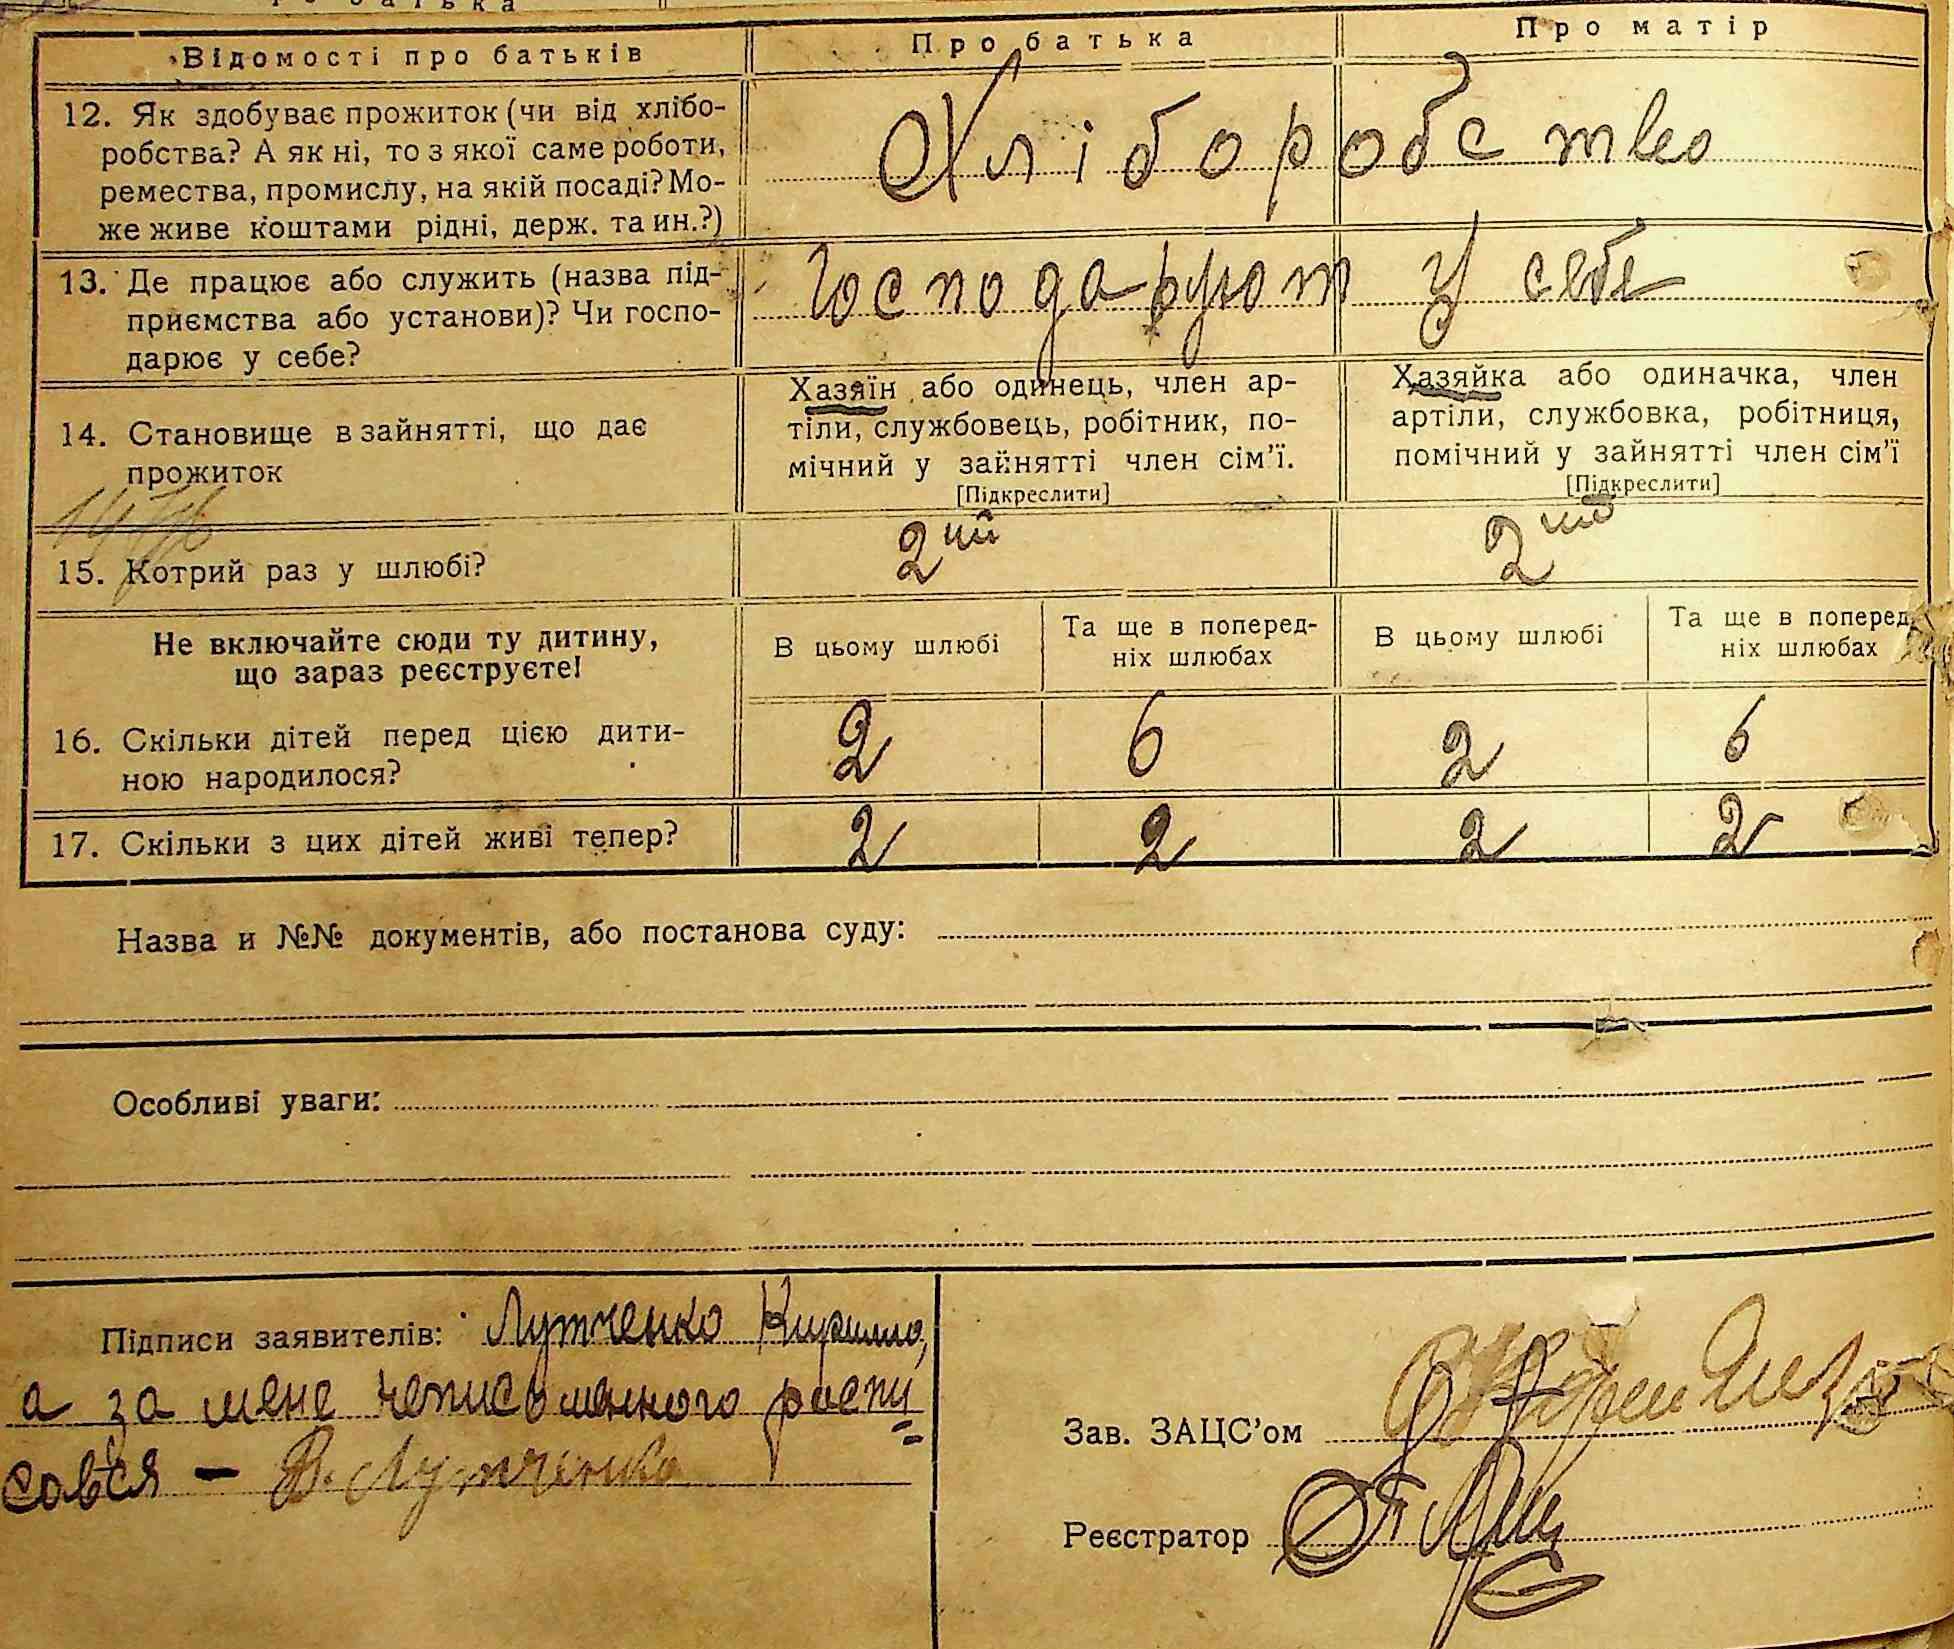 Відомості про батьків
Про батька
Про матір
12. Як здобуває прожиток (чи від хлібо-
робства? А як ні, то з якої саме роботи,
ремества, промислу, на якій посаді? Мо-
же живе коштами рідні, держ. та ин.?)
Хліборобство
13. Де працює або служить (назва під-
приємства або установи)? Чи госпо-
дарює у себе?
Господарют у себе
14. Становище в зайнятті, що дає
прожиток
Хазяїн або одинець, член ар-
тіли, службовець, робітник, по-
мічний у зайнятті член сім'ї.
[Підкреслити]
Хазяйка або одиначка, член
артіли, службовка, робітниця,
помічний у зайнятті член сім'ї
[Підкреслити]
15. Котрий раз у шлюбі?
2ий
2ий
Не включайте сюди ту дитину,
що зараз реєструєте!
В цьому шлюбі
Та ще в поперед-
ніх шлюбах
В цьому шлюбі
Та ще в поперед-
ніх шлюбах
16. Скільки дітей перед цією дити-
ною народилося?
2 6 2 6
17. Скільки з цих дітей живі тепер?
2 2 2 2
Назва и №№ документів, або постанова суду:
Особливі уваги:
Підписи заявителів: Лутченко Кирило,
а за мене неписьменного распи
сався – В. Лутченко
Зав. ЗАЦС'ом
Реєстратор